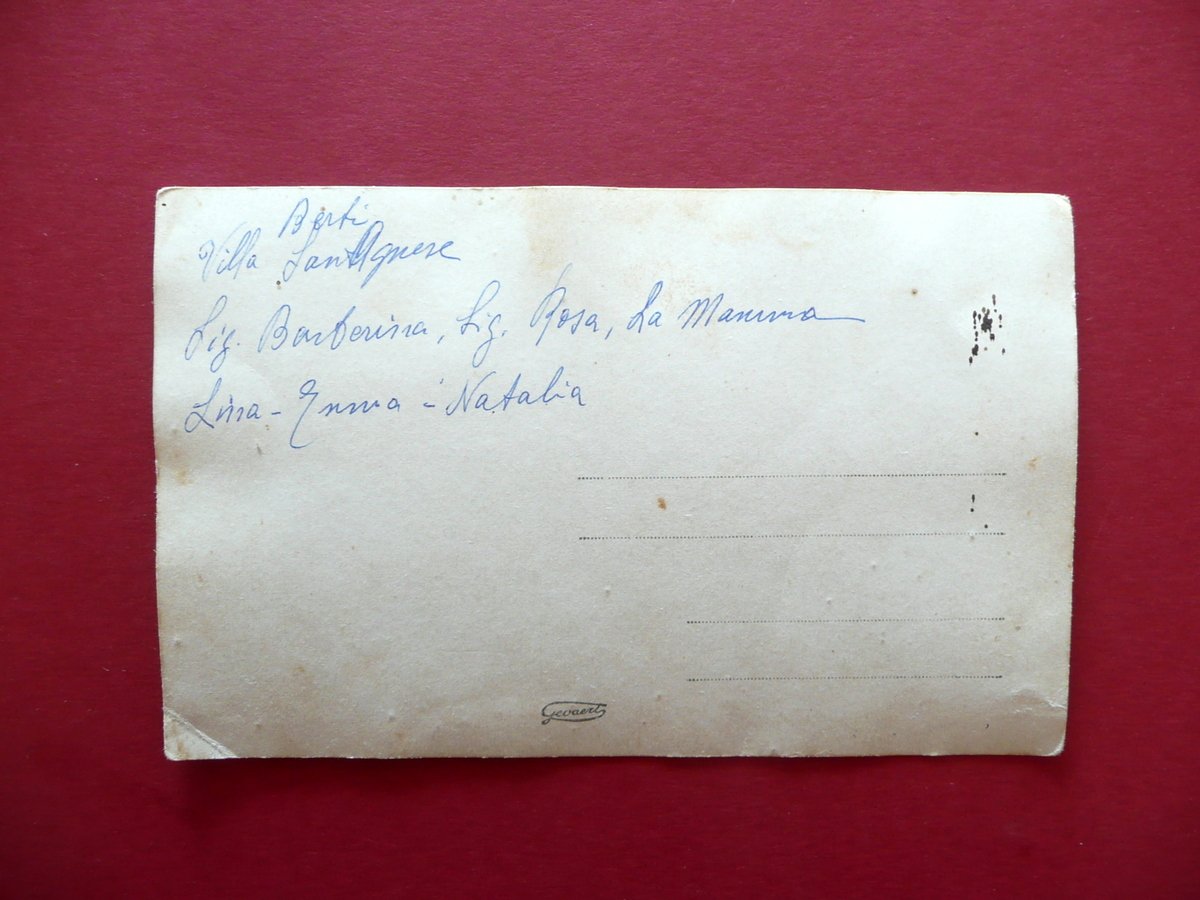 Berti
Villa Sant'Agnese
Sig. Barberina, Sig. Rosa, La Mamma
Lina - Emma - Natalia
Gevaert